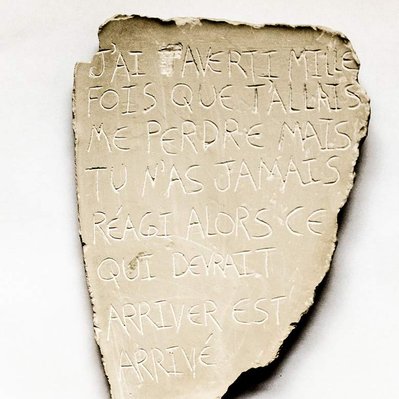 J'AI T'AVERTI MILLE
FOIS QUE T'ALLAIS
ME PERDRE MAIS
TU N'AS JAMAIS
RÉAGI ALORS CE
QUI DEVRAIT
ARRIVER EST
ARRIVÉ